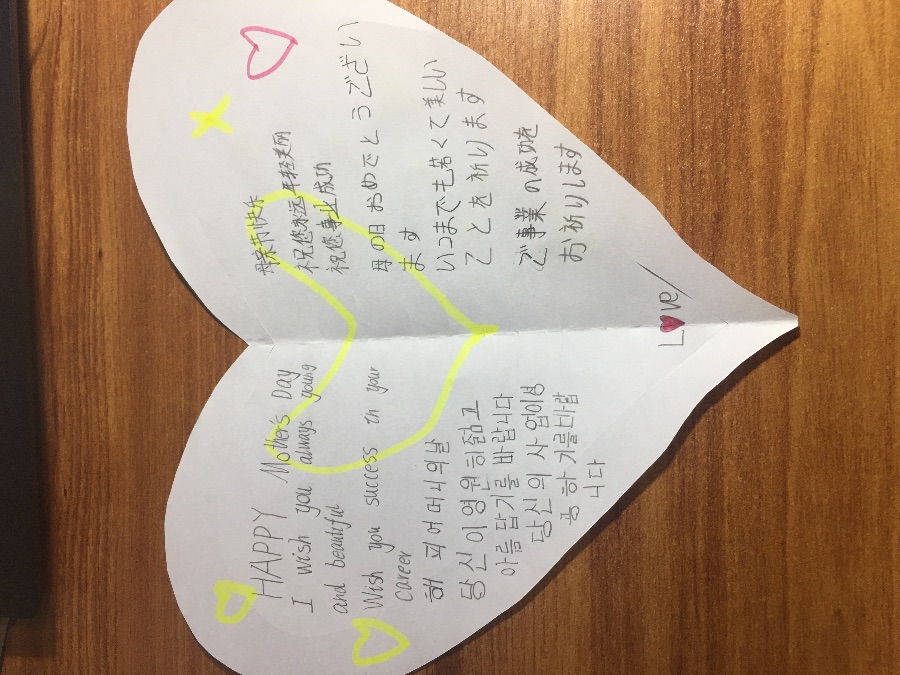 HAPPY Mother's Day
I wish you always young
and beautiful
Wish you success in your
career
해피어머니의날
당신이영원히젊고
아름답기를바랍니다
당신의사업이성
공하기를바랍
니다
母亲节快乐
祝您永远年轻美丽
祝您事业成功
母の日おめでとうござい
ます
いつまでも若くて美しい
ことを祈ります
ご事業の成功を
お祈りします
Love/